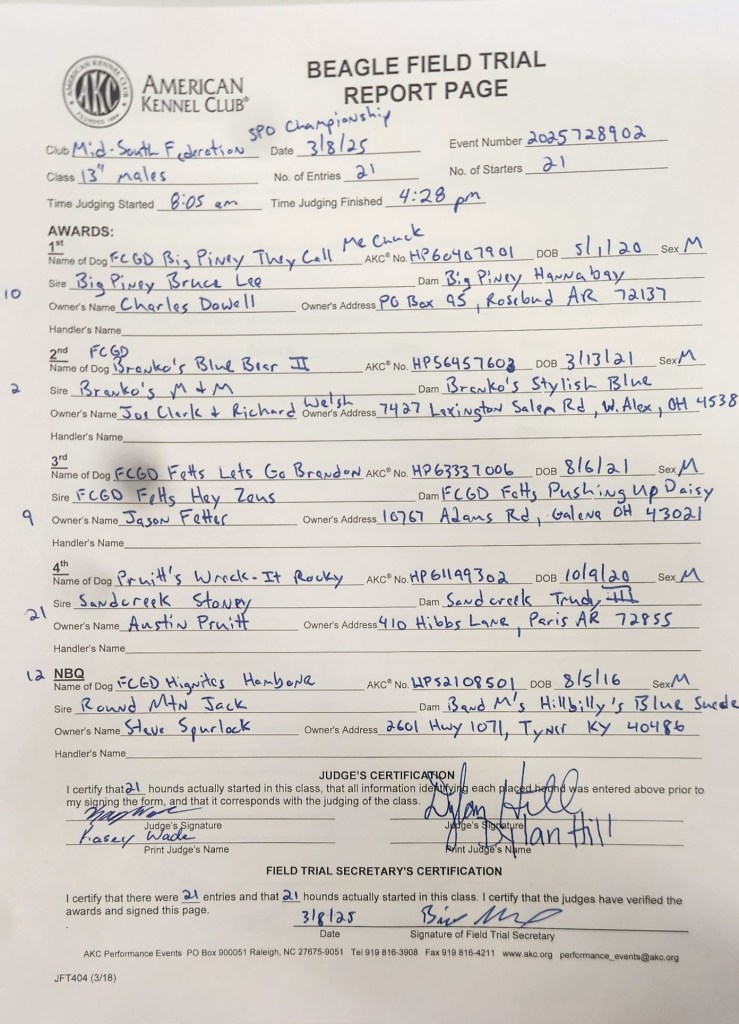 AMERICAN KENNEL CLUB
FOUNDED 1884
AKC
AMERICAN
KENNEL CLUB®
BEAGLE FIELD TRIAL
REPORT PAGE
SPO Championship
Club Mid-South Federation Date 3/8/25 Event Number 2025728902
Class 13" males No. of Entries 21 No. of Starters 21
Time Judging Started 8:05 am Time Judging Finished 4:28 pm
AWARDS:
1st
Name of Dog FCGD Big Piney They Call Me Chuck AKC® No. HP60407901 DOB 5/1/20 Sex M
Sire Big Piney Bruce Lee Dam Big Piney Hannabay
10
Owner's Name Charles Dowell Owner's Address PO Box 95, Rosebud AR 72137
Handler's Name
2nd FCGD
Name of Dog Branko's Blue Bear II AKC® No. HP56457603 DOB 3/13/21 Sex M
2 Sire Branko's M & M Dam Branko's Stylish Blue
Owner's Name Joe Clark & Richard Welsh Owner's Address 7427 Lexington Salem Rd, W. Alex, OH 4538
Handler's Name
3rd
Name of Dog FCGD Fetts Lets Go Brandon AKC® No. HP63337006 DOB 8/6/21 Sex M
Sire FCGD Fetts Hey Zeus Dam FCGD Fetts Pushing Up Daisy
9 Owner's Name Jason Fetter Owner's Address 10767 Adams Rd, Galena OH 43021
Handler's Name
4th
Name of Dog Pruitt's Wreck-It Rocky AKC® No. HP61199302 DOB 10/9/20 Sex M
Sire Sandcreek Stoney Dam Sandcreek Trudy III
21 Owner's Name Austin Pruitt Owner's Address 410 Hibbs Lane, Paris AR 72855
Handler's Name
12 NBQ
Name of Dog FCGD Hignites Hambone AKC® No. HP52108501 DOB 8/5/16 Sex M
Sire Round Mtn Jack Dam Band M's Hillbilly's Blue Suede
Owner's Name Steve Spurlock Owner's Address 2601 Hwy 1071, Tyner KY 40486
Handler's Name
JUDGE'S CERTIFICATION
I certify that 21 hounds actually started in this class, that all information identifying each placed hound was entered above prior to
my signing the form, and that it corresponds with the judging of the class.
Dylan Hill
Judge's Signature Judge's Signature
Kasey Wade Dylan Hill
Print Judge's Name Print Judge's Name
FIELD TRIAL SECRETARY'S CERTIFICATION
I certify that there were 21 entries and that 21 hounds actually started in this class. I certify that the judges have verified the
awards and signed this page.
3/8/25
Date Signature of Field Trial Secretary
AKC Performance Events PO Box 900051 Raleigh, NC 27675-9051 Tel 919 816-3908 Fax 919 816-4211 www.akc.org performance_events@akc.org
JFT404 (3/18)